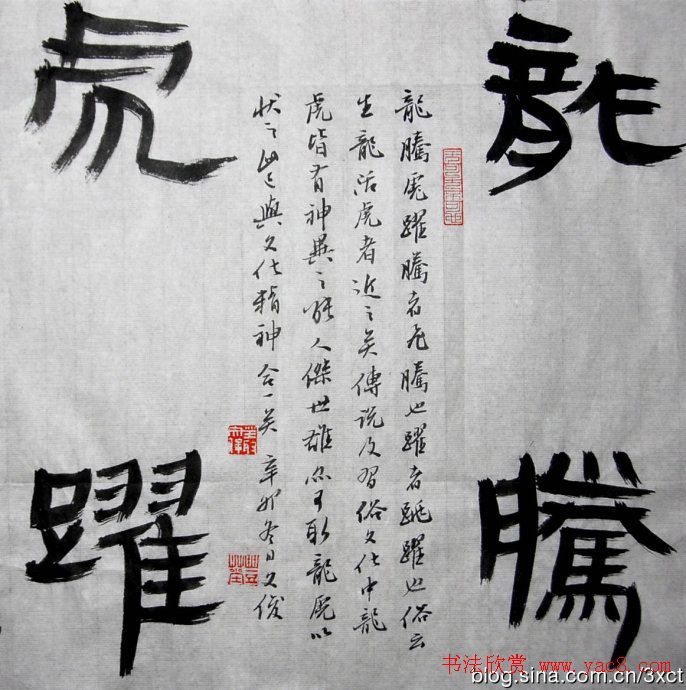 龍騰
虎躍
龍騰虎躍騰者飛騰也躍者跳躍也俗云
生龍活虎者近之矣傳说及習俗文化中龍
虎皆有神異之能人傑世雄必可取龍虎以
状之此已與文化精神合一矣辛卯冬日文俊
书法欣赏 www.yac8.com
blog.sina.com.cn/3xct